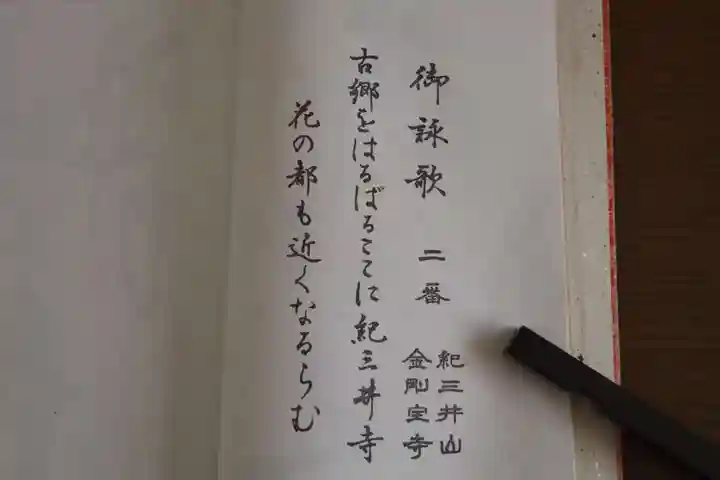 御詠歌 二番 紀三井山
金剛宝寺
古郷をはるばるここに紀三井寺
花の都も近くなるらむ